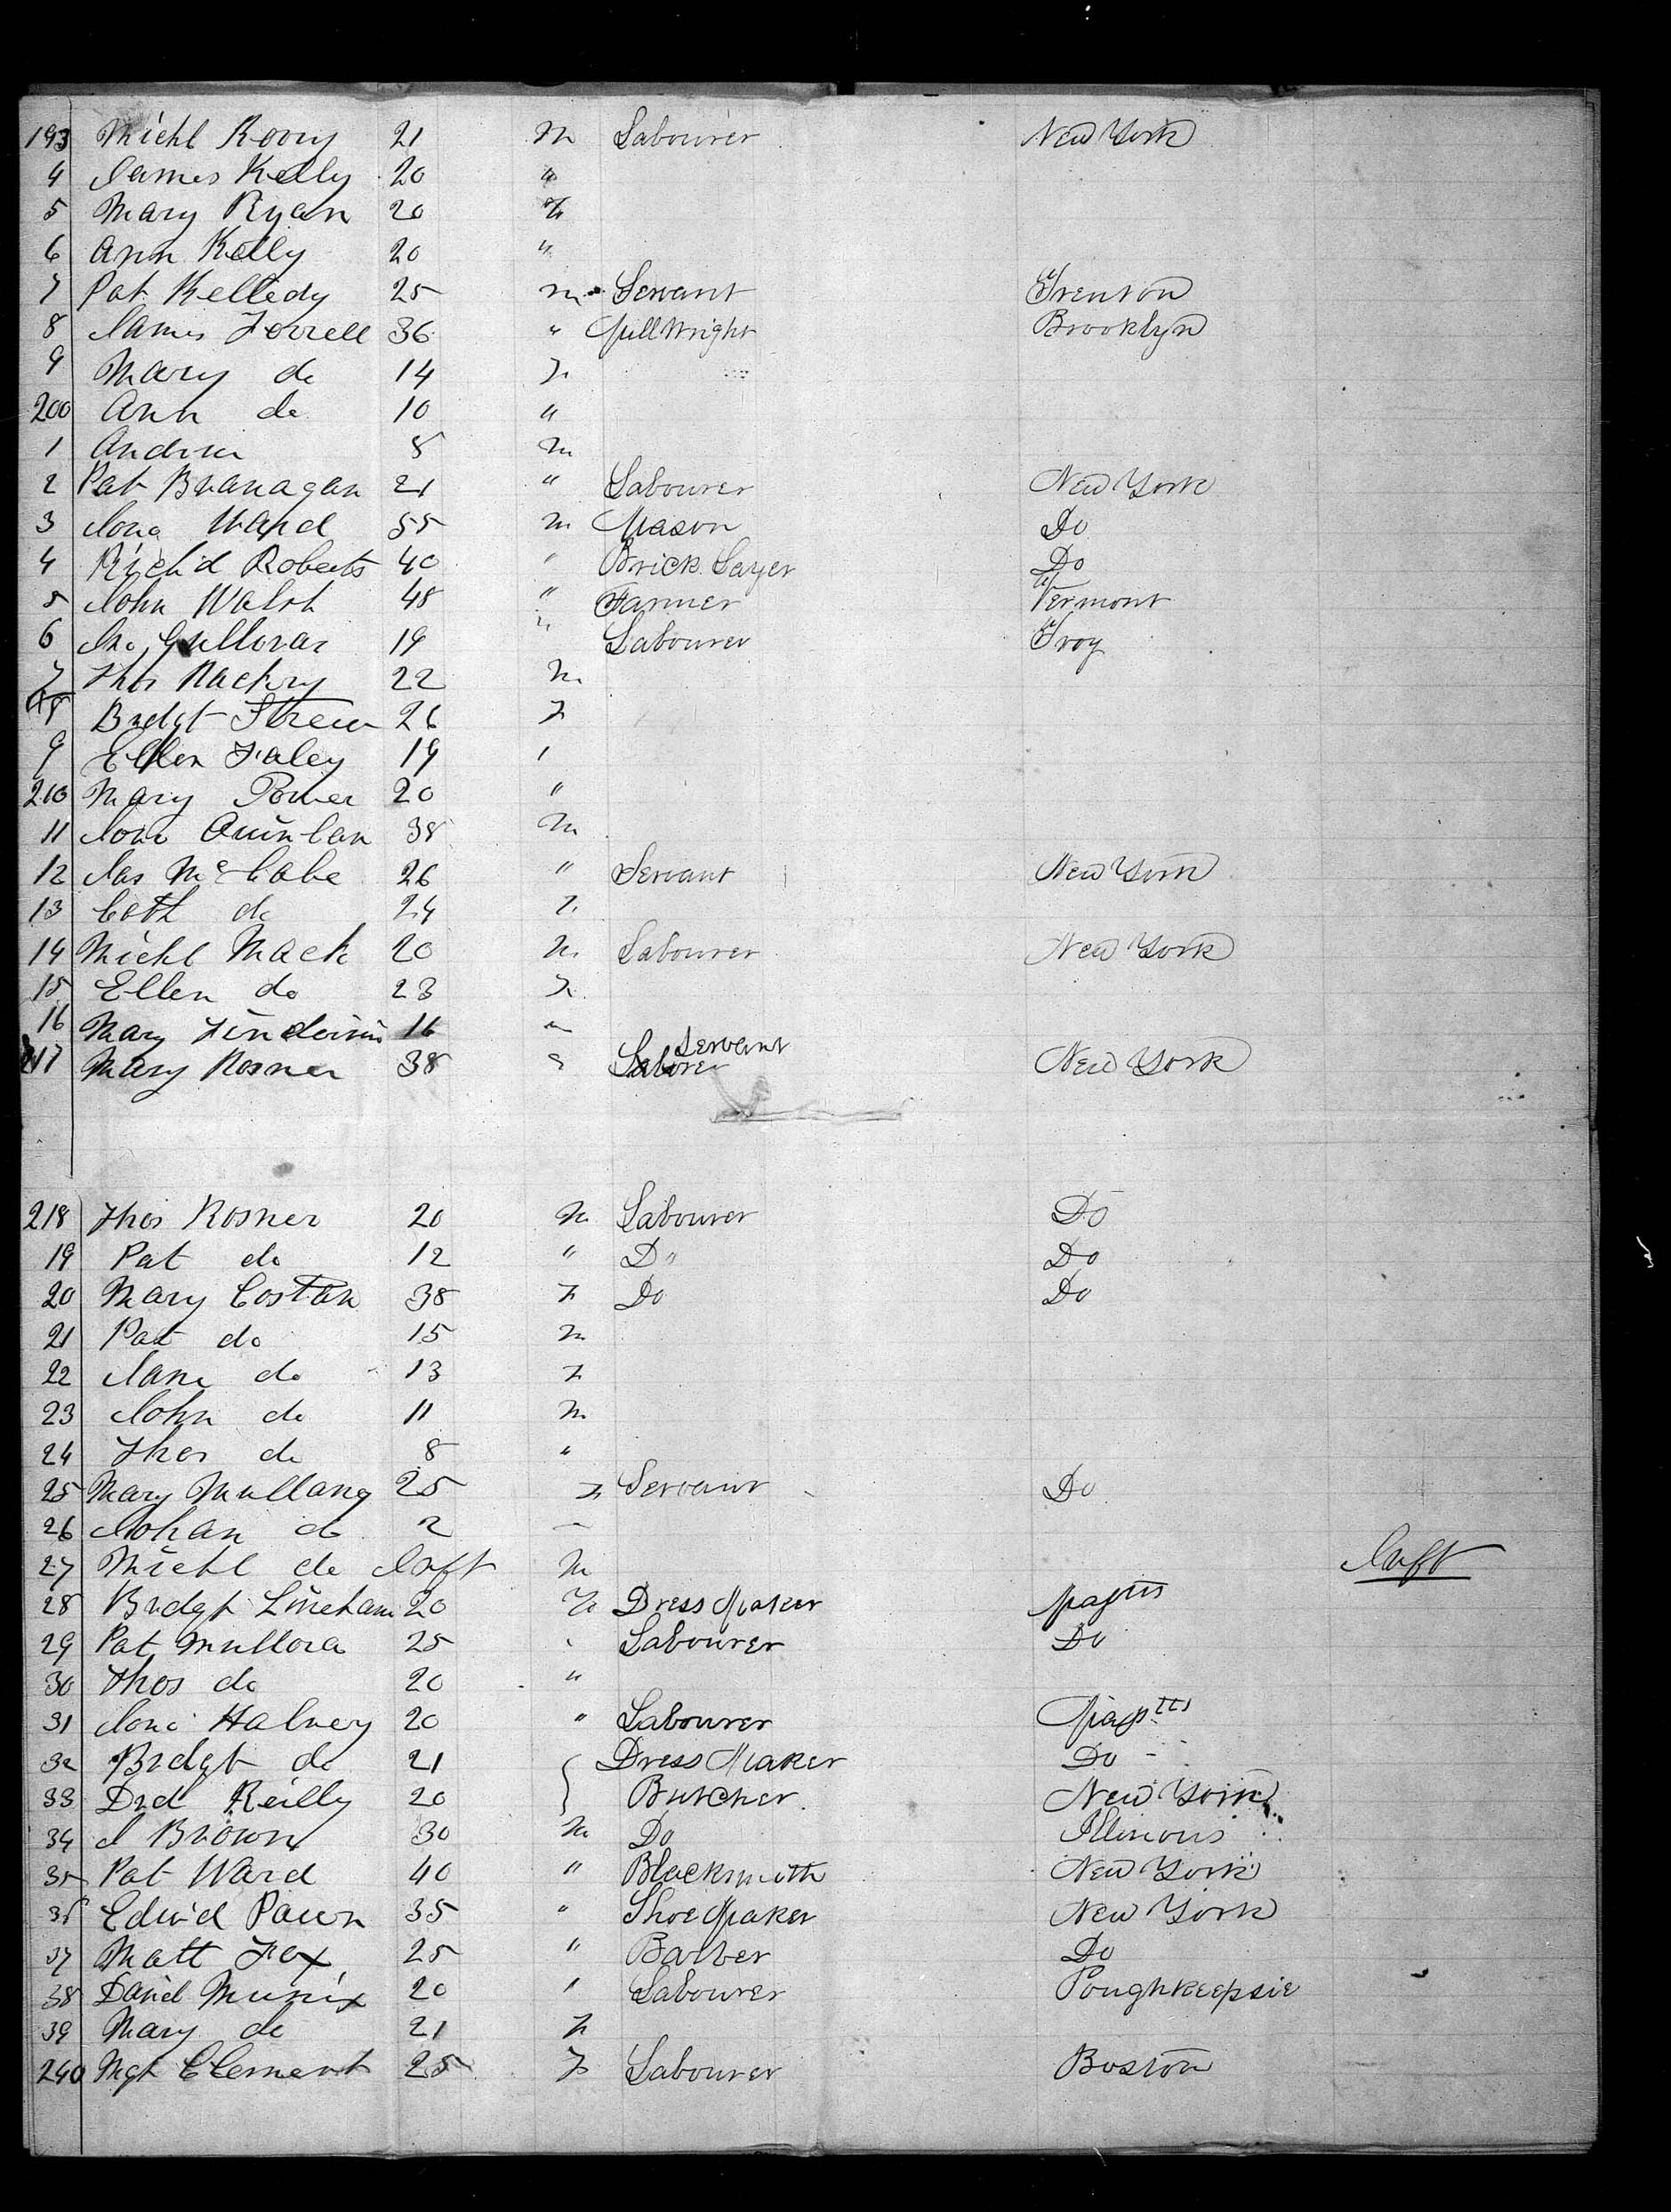 193 Michl Roory 21 m Labourer New York
4 James Kelly 20 "
5 Mary Ryan 20 "
6 Ann Kelly 20 "
7 Pat Kelledy 25 m Servant Trenton
8 James Forrell 36 " MillWright Brooklyn
9 Mary do 14 F
200 Ann do 10 "
1 Andrew 8 m
2 Pat Branagan 21 " Labourer New York
3 Ward 55 m Mason Do
4 Rich'd Roberts 40 " Brick Layer Do
5 John Walsh 48 " Farmer Vermont
6 Jno 19 " Labourer Troy
7 Thos 22 m
8 Bredgt 26 F
9 Ellen Faley 19 "
210 Mary Power 20 "
11 Quinlan 38 m
12 Jas McCabe 26 " Servant New York
13 Cath do 24 F
14 Michl Mack 20 m Labourer New York
15 Ellen do 23 F
16 Mary 16 "
217 Mary Rosner 38 " Servant New York
218 Thos Rosner 20 m Labourer Do
19 Pat do 12 " Do Do
20 Mary Costan 38 F Do Do
21 Pat do 15 m
22 Jane do 13 F
23 John do 11 m
24 Thos do 8 "
25 Mary Mullany 25 F Servant Do
26 Johan do 2 "
27 Michl do Inft m Inft
28 Bredgt Lineham 20 F Dress Maker Masstts
29 Pat Mullora 25 " Labourer Do
30 Thos do 20 "
31 Halney 20 " Labourer Masstts
32 Bredgt do 21 Dress Maker Do
33 Reilly 20 Butcher New York
34 J Brown 30 m Do Illinouis
35 Pat Ward 40 " Blacksmith New York
36 Edw'd 35 " Shoe Maker New York
37 Matt Fox 25 " Barber Do
38 Daniel Munix 20 " Labourer Poughkeepsie
39 Mary do 21 F
240 Mgt Clement 25 F Labourer Boston